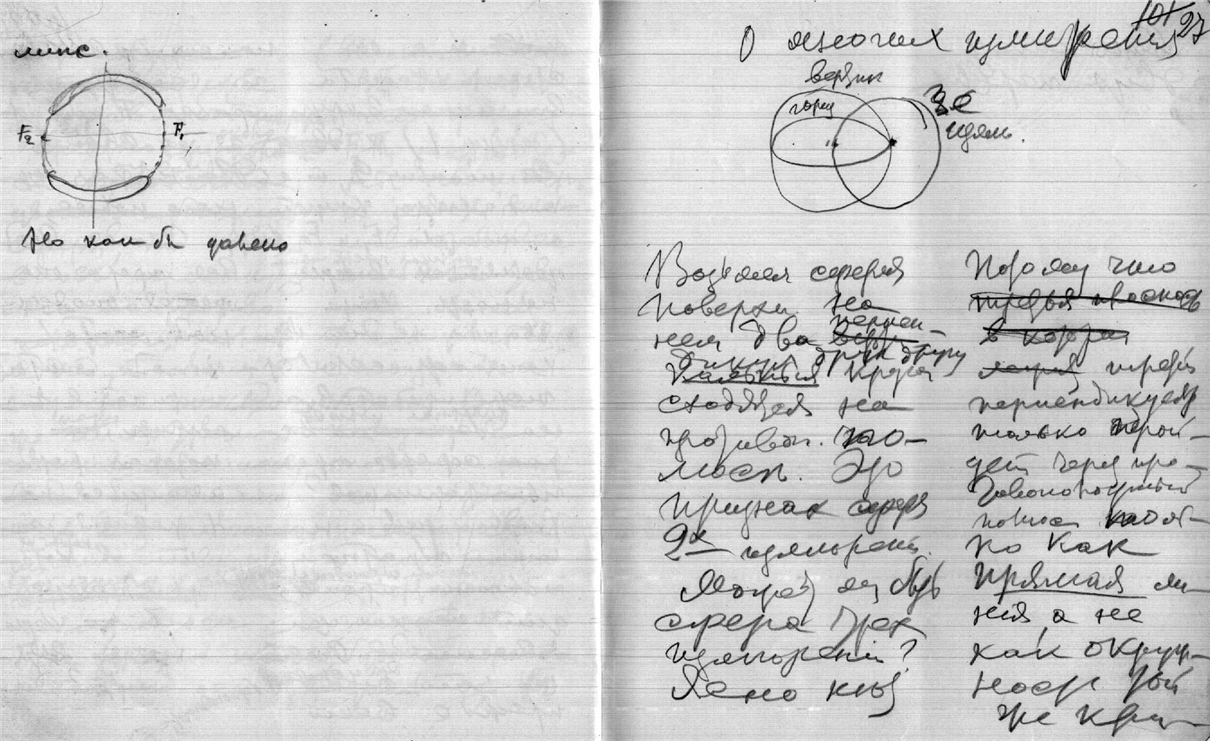 липс.
F2
F1
Но как бы давено
101 27
О многих измерения
вертик
гориз
3е
измъ.
Возьмем сферич
поверхн. На
ней два перпен-
дикул. друг другу
круга
сходятся на
противоп. по-
люсъ. Это
признак сферы
2х измърені.
Может ли быть
сфера трех
измърені?
Ясно нътъ
Потому что
третья плоскость
в которой
третій
перпендикуляр
только прой-
детъ через про-
тивоположный
полюс
но как
прямая ли-
нія а не
как окруж-
ность той
же кри-